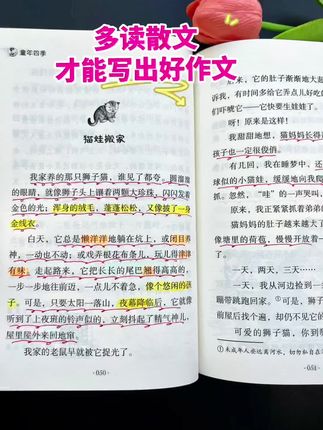 多读散文
才能写出好作文
童年四季
猫娃搬家
我家养的那只狮子猫，谁见了都夸。圆溜溜
的眼睛，就像狮子头上镶着两颗大珍珠，闪闪发着
金色的光；浑身的绒毛，蓬蓬松松，又像披了一身
金线衣。
白天，它总是懒洋洋地躺在炕上，或闭目养
神，一动也不动；或戏弄银花布条儿，玩儿得津津
有味。走起路来，它把长长的尾巴翘得高高的，
一步一步地往前迈，一点儿也不着急，像个悠闲的
子。可是，只要太阳一落山，夜幕降临后，它就像
听到了上夜班的铃声似的，立刻抖起了精神儿，
屋里屋外来回地窜。
我家的老鼠早就被它捉光了。
050
原来，它的肚子渐渐地大起
诉我，有时间多给它弄点儿好吃
们吓唬它——它快生娃娃了。
呀！原来是这样。
我甜甜地想，猫妈妈长得
孩子也一定很俊俏。
有几回，我在睡梦中，还
球似的小猫娃，缓缓地向我爬
忽然，“哇”的一声哭叫，
原来，我正紧紧抓着弟弟的
猫妈妈的肚子越来越大了
像墙里的荷苞，慢慢开放着一
了。
一天，两天，三天……
一天，我从河边捡到一
蹦带跳跑回家。①
前屋后找个遍，却仍不见它的
可爱的狮子猫，你到
① 未成年人应远离河水，切勿私自在
051